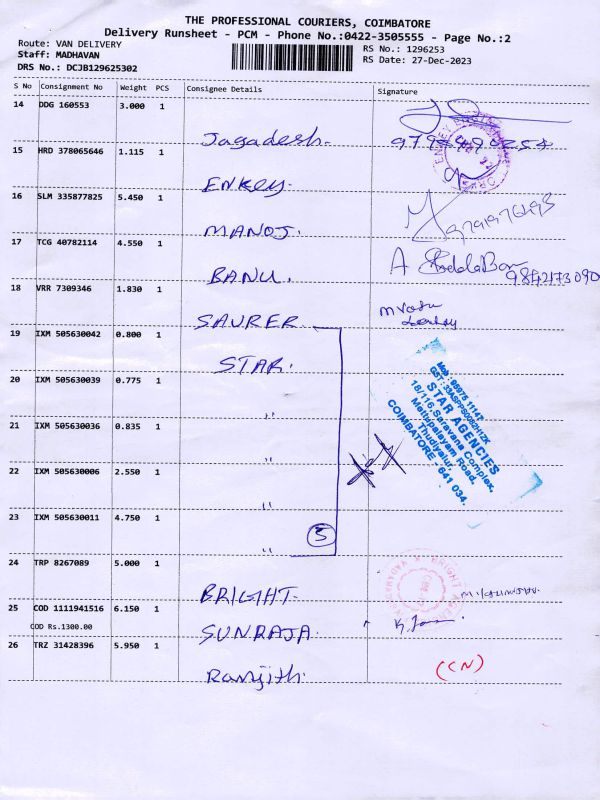 THE PROFESSIONAL COURIERS, COIMBATORE
Delivery Runsheet - PCM - Phone No.:0422-3505555 - Page No.:2
Route: VAN DELIVERY
Staff: MADHAVAN
DRS No.: DCJB129625302
RS No.: 1296253
RS Date: 27-Dec-2023
S No Consignment No Weight PCS Consignee Details Signature
14 DDG 160553 3.000 1
Jagadesh.
15 HRD 378065646 1.115 1
ENKEY.
16 SLM 335877825 5.450 1
MANOJ.
17 TCG 40782114 4.550 1
BANU. 9842173090
18 VRR 7309346 1.830 1
SAURER
19 IXM 505630042 0.800 1
STAR.
20 IXM 505630039 0.775 1
"
21 IXM 505630036 0.835 1
"
22 IXM 505630006 2.550 1
"
23 IXM 505630011 4.750 1
" 5
STAR AGENCIES
18/116, Saravana Complex,
Mettupalayam Road,
Thudiyalur,
COIMBATORE - 641 034.
24 TRP 8267089 5.000 1
BRIGHT
25 COD 1111941516 6.150 1
COD Rs.1300.00
SUNRAJA
26 TRZ 31428396 5.950 1
(CN)
Ranjith.